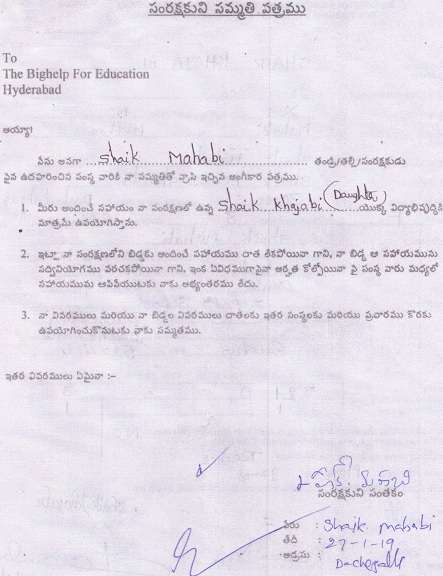 సంరక్షకుని సమ్మతి పత్రము
To
The Bighelp For Education
Hyderabad
అయ్యా!
నేను అనగా ...Shaik Mahabi... తండ్రి/తల్లి/సంరక్షకుడు
పైన ఉదహరించిన సంస్థ వారికి నా సమ్మతితో వ్రాసి ఇచ్చిన అంగీకార పత్రము.
1. మీరు అందించే సహాయం నా సంరక్షణలో ఉన్న Shaik Khajabi (Daughter) ...యొక్క విద్యాభివృద్ధికి
మాత్రమే ఉపయోగిస్తాను.
2. ఇట్లా నా సంరక్షణలోని బిడ్డకు అందించే సహాయము దాత లేకపోయినా గాని, నా బిడ్డ ఆ సహాయమును
సద్వినియోగము పరచకపోయినా గాని, ఇంక ఏవిధముగానైనా అర్హత కోల్పోయినా పై సంస్థ వారు మధ్యలో
సహాయమును ఆపివేయుటకు నాకు అభ్యంతరము లేదు.
3. నా వివరములు మరియు నా బిడ్డల వివరములు దాతలకు ఇతర సంస్థలకు మరియు ప్రచారము కొరకు
ఉపయోగించుకొనుటకు నాకు సమ్మతము.
ఇతర వివరములు ఏమైనా :-
షేక్. మహాబి
సంరక్షకుని సంతకం
పేరు : Shaik mahabi
తేది : 27-1-19
అడ్రసు :